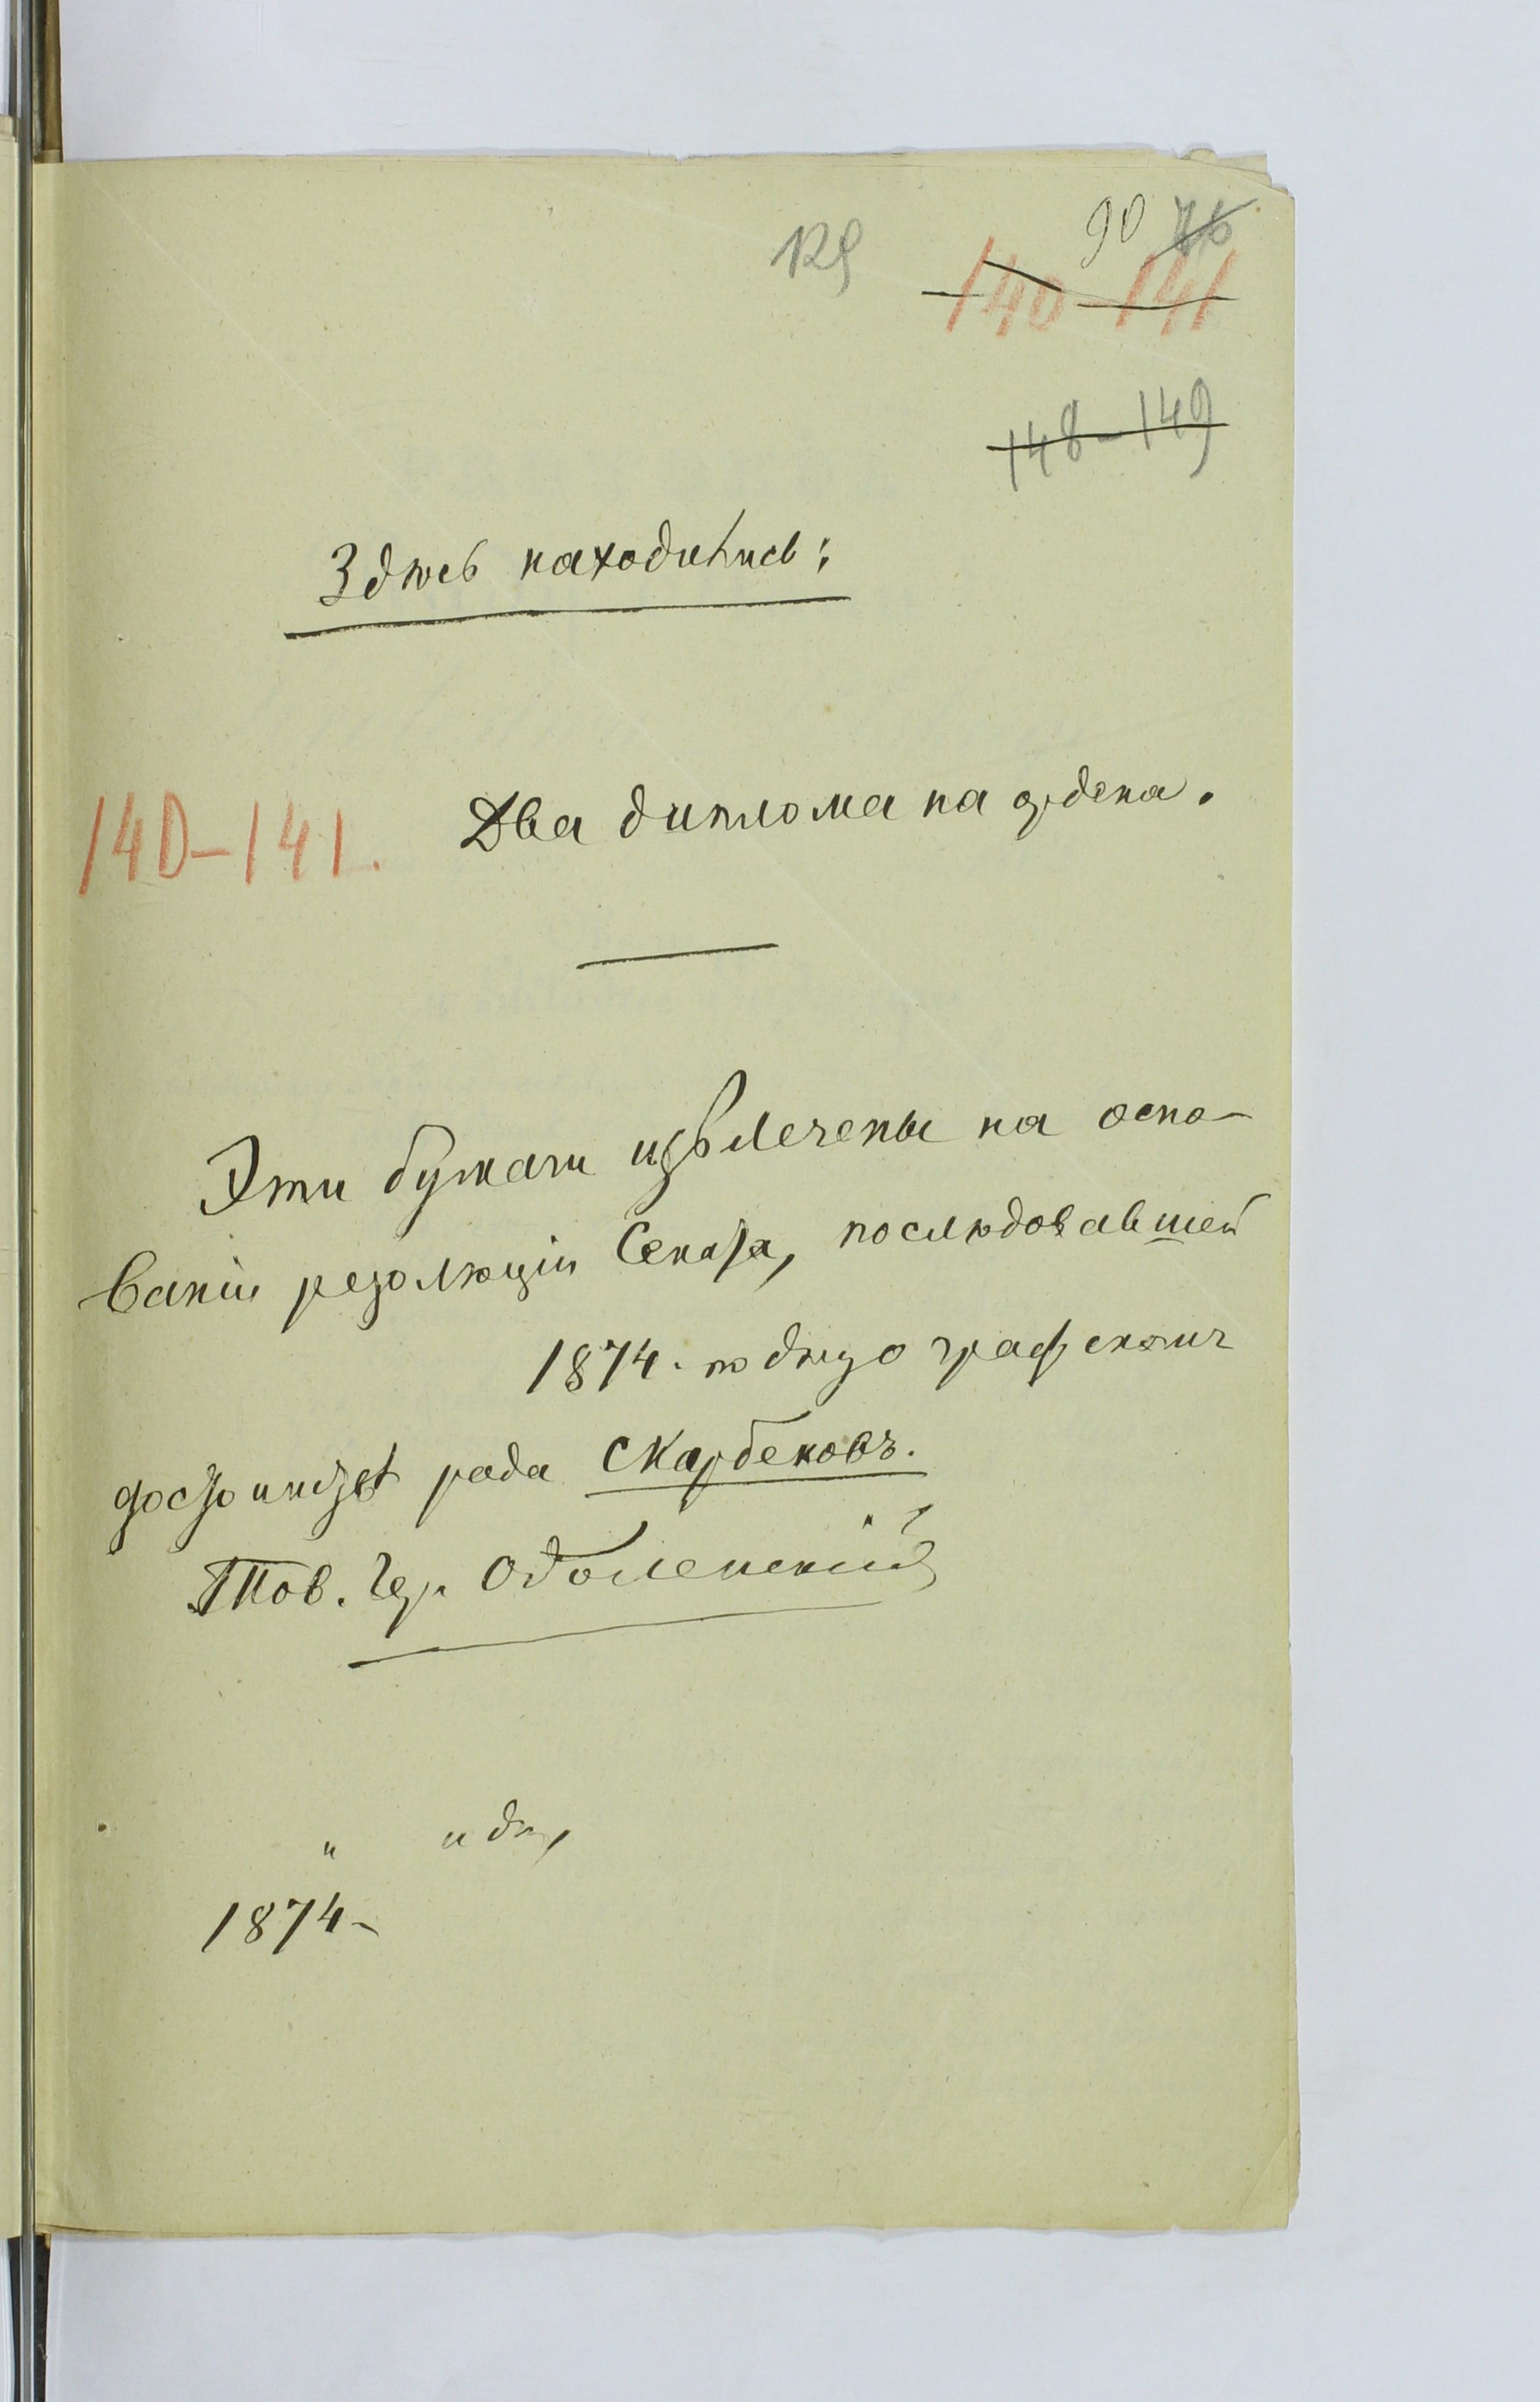 90 76
129 140-141
148-149
Здѣсь находились:
140-141. Два диплома на ордена.
Эти бумаги извлечены на осно-
ваніи резолюціи Сената, послѣдовавшей
1874. по дѣлу о графскомъ
достоинствѣ рода Скарбековъ.
Тов. Гер. Оболенскій
" дня
1874-